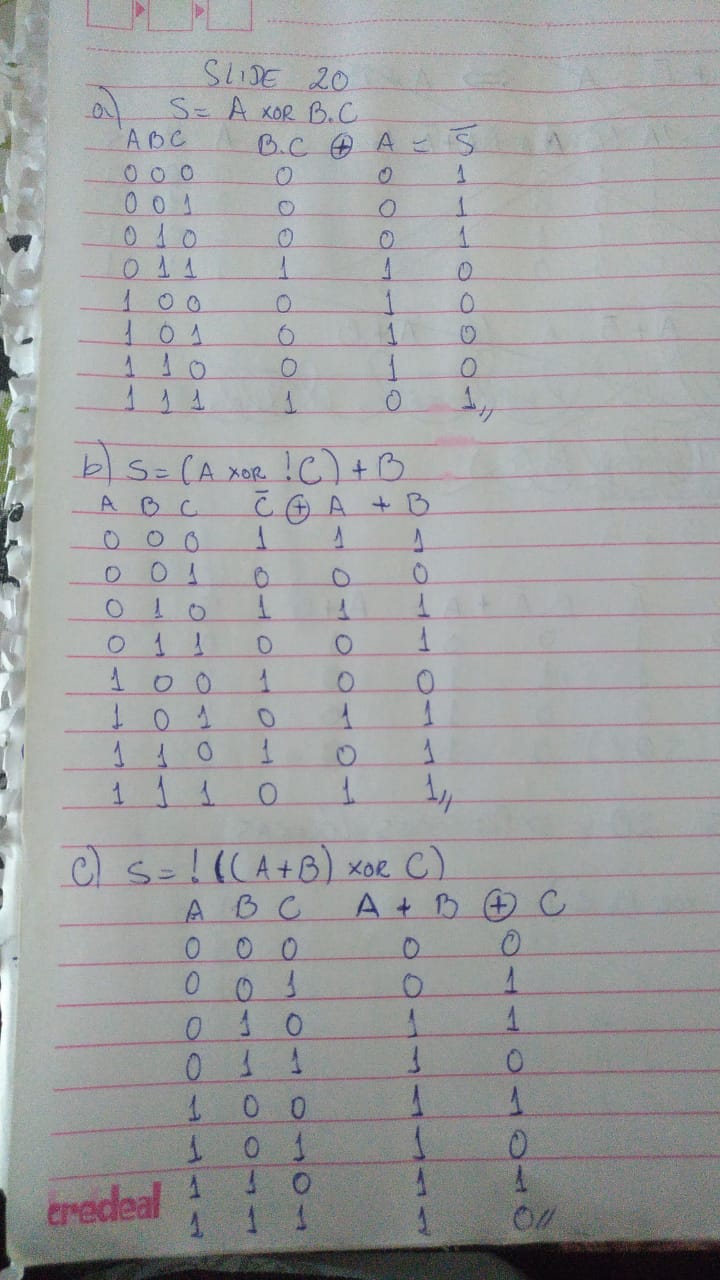 SLIDE 20
a) S= A XOR B.C
A B C B.C ⊕ A = S̅
0 0 0 0 0 1
0 0 1 0 0 1
0 1 0 0 0 1
0 1 1 1 1 0
1 0 0 0 1 0
1 0 1 0 1 0
1 1 0 0 1 0
1 1 1 1 0 1,,
b) S= (A XOR !C) + B
A B C C̅ ⊕ A + B
0 0 0 1 1 1
0 0 1 0 0 0
0 1 0 1 1 1
0 1 1 0 0 1
1 0 0 1 0 0
1 0 1 0 1 1
1 1 0 1 0 1
1 1 1 0 1 1,,
C) S= !((A+B) XOR C)
A B C A + B ⊕ C
0 0 0 0 0
0 0 1 0 1
0 1 0 1 1
0 1 1 1 0
1 0 0 1 1
1 0 1 1 0
1 1 0 1 1
1 1 1 1 0,,
credeal